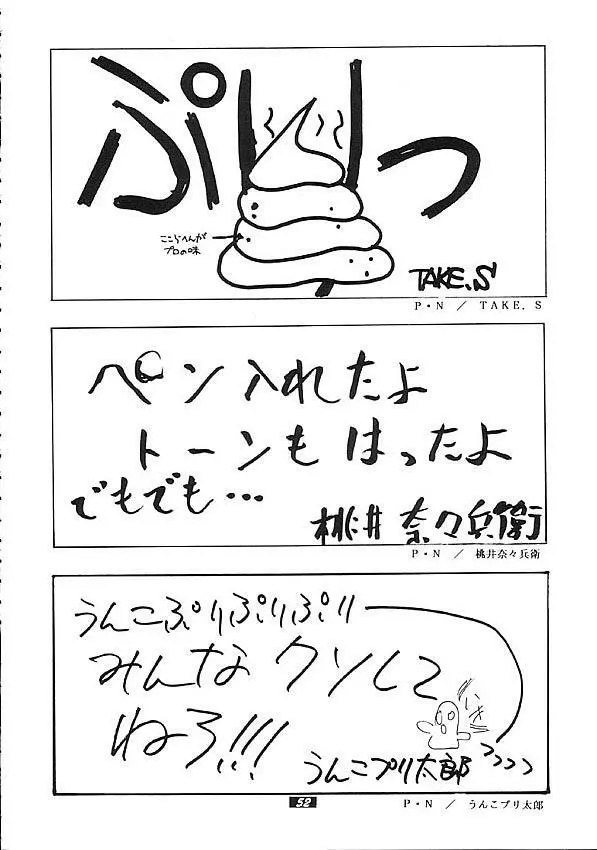 ぷりっ
ここらへんが
プロの味
TAKE.S
P・N ／ TAKE. S
ペン入れたよ
トーンも はったよ
でもでも…
桃井 奈々兵衛
P・N ／ 桃井奈々兵衛
うんこぷりぷりぷり
みんなクソして
ねろ!!!
いき
うんこプリ太郎
52
P・N ／ うんこプリ太郎